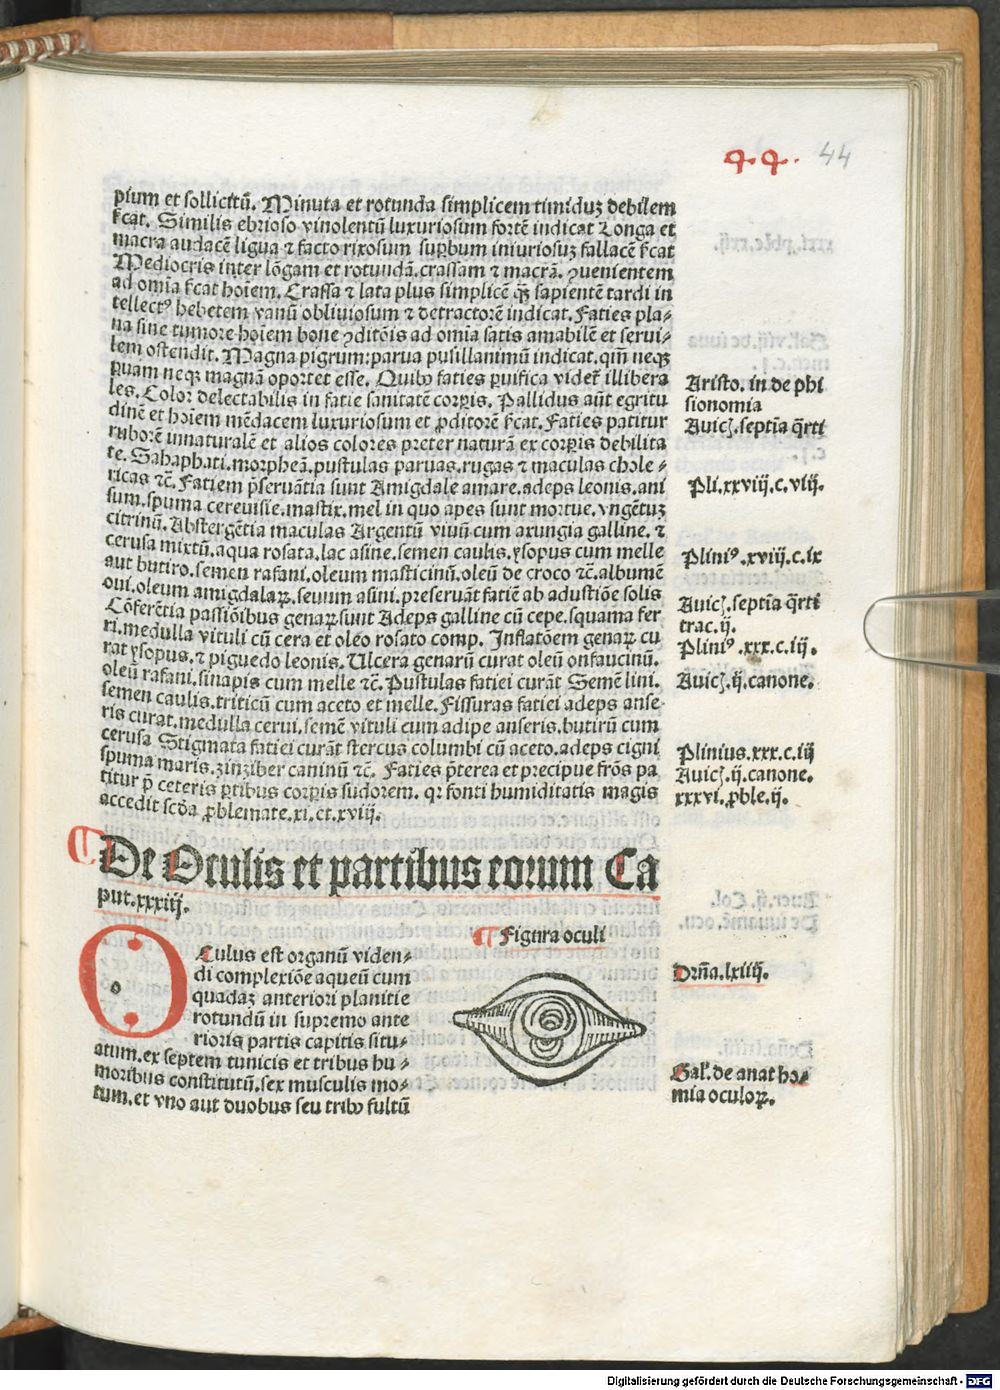 44. 44
pium et sollicitũ. Minuta et rotunda simplicem timiduꝫ debilem
fcat. Similis ebrioso vinolentũ luxuriosum fortẽ indicat Longa et
macra audacẽ ligua ⁊ facto rixosum supbum iniuriosuꝫ fallacẽ fcat
Mediocris inter lõgam et rotundã. crassam ⁊ macrã. ꝯuenientem
ad omia fcat hoiem. Crassa ⁊ lata plus simplicẽ qꝫ sapientẽ tardi in
tellectꝰ hebetem vanũ obliuiosum ⁊ detractorẽ indicat. Facies pla-
na sine tumore hoiem bone ꝯditõis ad omia satis amabilẽ et serui-
lem ostendit. Magna pigrum: parua pusillanimũ indicat. qm̃ neqꝫ
puam neqꝫ magnã oportet esse. Quibꝰ facies puifica videt̃ illibera
les. Color delectabilis in facie sanitatẽ corpis. Pallidus aũt egritu
dinẽ et hoiem mẽdacem luxuriosum et ꝓditorẽ fcat. Facies patitur
ruborẽ innaturalẽ et alios colores preter naturã ex corpis debilita
te. Sahaphati. morpheã. pustulas paruas. rugas ⁊ maculas chole-
ricas ⁊c̃. Faciem pseruãtia sunt Amigdale amare. adeps leonis. ani
sum. spuma cereuisie. mastix. mel in quo apes sunt mortue. vngẽtuꝫ
citrinũ. Abstergẽtia maculas Argentũ viuũ cum axungia galline. ⁊
cerusa mixtũ. aqua rosata. lac asine. semen caulis. ysopus cum melle
aut butiro. semen rafani. oleum masticinũ. oleũ de croco ⁊c̃. albumẽ
oui. oleum amigdalaꝝ. seuum asini. preseruãt faciẽ ab adustiõe solis
Cõferẽtia passiõibus genaꝝ sunt Adeps galline cũ cepe. squama fer
ri. medulla vituli cũ cera et oleo rosato comp. Inflatõem genaꝝ cu
rat ysopus. ⁊ piguedo leonis. Ulcera genarũ curat oleũ onfaucinũ.
oleũ rafani. sinapis cum melle ⁊c̃. Pustulas faciei curãt Semẽ lini.
semen caulis. triticũ cum aceto et melle. Fissuras faciei adeps anse-
ris curat. medulla cerui. semẽ vituli cum adipe anseris. butirũ cum
cerusa Stigmata faciei curãt stercus columbi cũ aceto. adeps cigni
spuma maris. zinziber caninũ ⁊c̃. Facies pterea et precipue frõs pa
titur p̃ ceteris ptibus corpis sudorem. qꝛ fonti humiditatis magis
accedit scd̃a ꝓblemate. xi. et. xviij.
Aristo. in de phi
sionomia
Auicꝫ. septia q̃rti
c j.
Pli. xxviij. c. viij.
Pliniꝰ. xviij. c. ix
Auicꝫ. septia q̃rti
trac. ij.
Pliniꝰ. xxx. c. iij.
Auicꝫ. ij. canone.
Plinius. xxx. c. iij
Auicꝫ. ij. canone.
xxxvi. ꝓble. ij.
¶ De Oculis et partibus eorum Ca
put. xxxiij.
Oculus est organũ viden-
di complexiõe aqueũ cum
quadaꝫ anteriori planitie
rotundũ in supremo ante
rioris partis capitis situ-
atum. ex septem tunicis et tribus hu-
moribus constitutũ. sex musculis mo-
tum. et vno aut duobus seu tribꝰ fultũ
¶ Figura oculi
Drña. lxiiij.
Gal'. de anatho-
mia oculoꝝ.
Digitalisierung gefördert durch die Deutsche Forschungsgemeinschaft - DFG